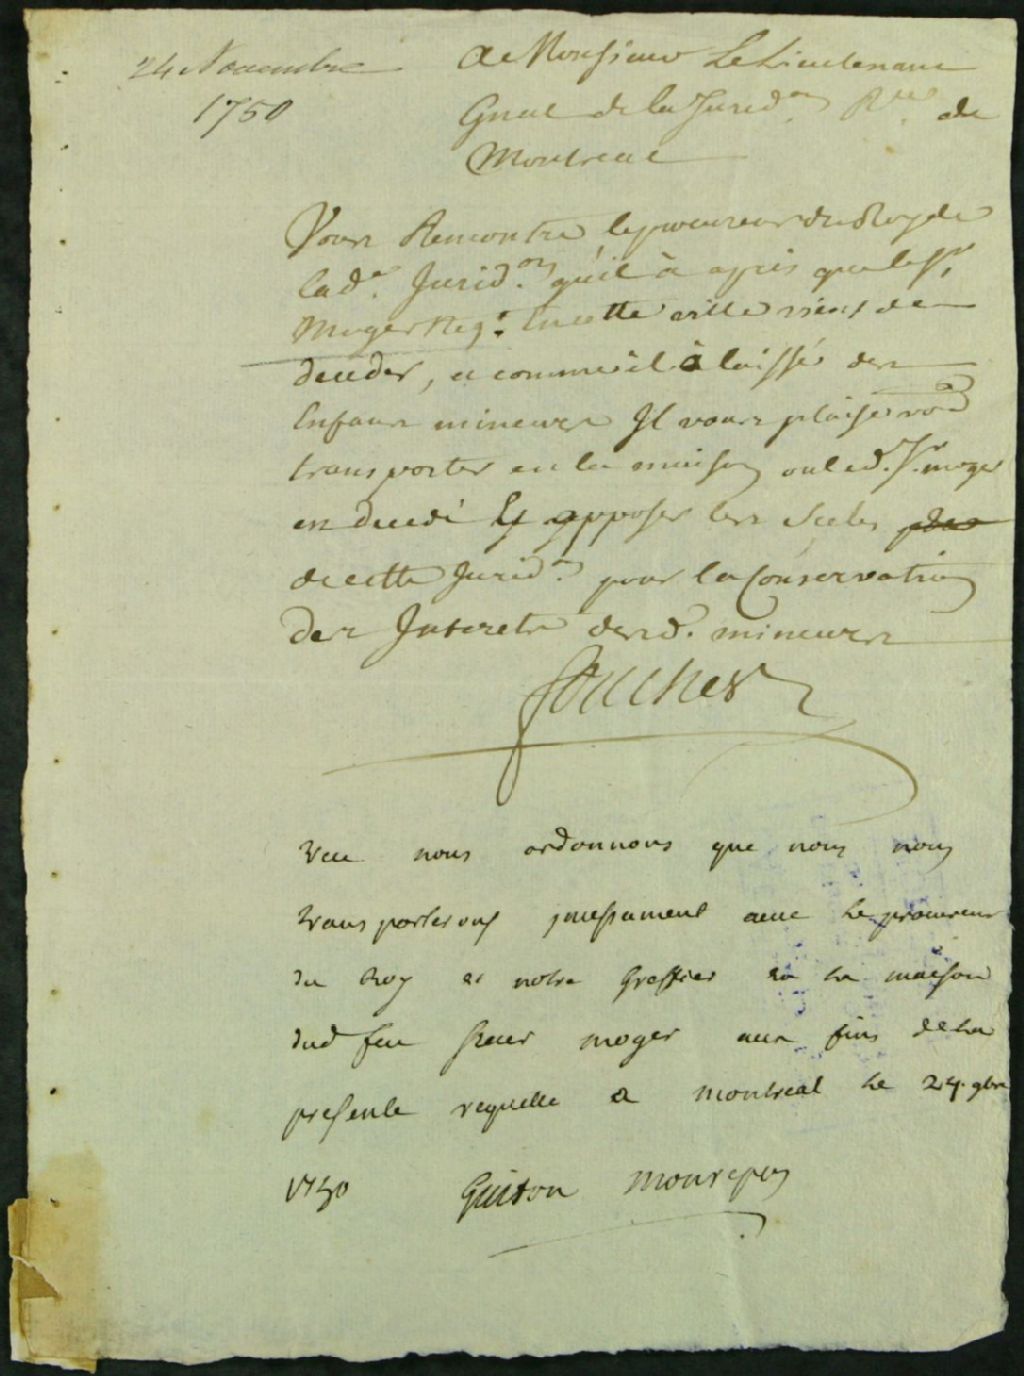 24 Novembre
1750
A Monsieur Le Lieutenant
Gnal de la Jurid.on Rlle de
Montreal
Vous Remontre le procureur du Roy de
lad.e Jurid.on qu'il à apris que le Sr
Moger Neg.t En cette ville vient de
deceder, et comme il à laissé des
Enfans mineurs Il vous plaise vous
transporter en la maison ou led. Sr. moger
est decedé Et y apposer les Scelés
de cette Jurid.on pour la Conservation
des Interets desd. mineurs
Foucher
Veu nous ordonnons que nous nous
transporterons incessament avec le procureur
du Roy et notre Greffier en la maison
dud feu Sieur moger aux fins de la
presente requette a montreal le 24. 9bre
1750 Guiton Monrepos